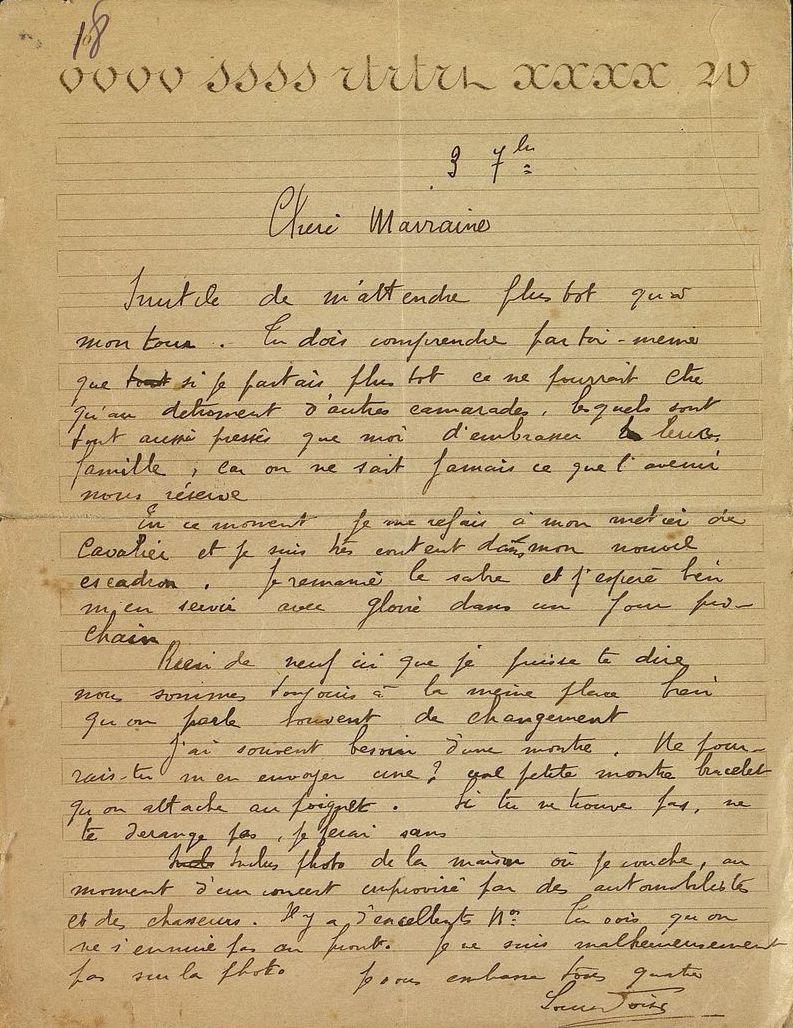 18
vvvv ssss rtrtrt xxxx w
3 7bre
Cheri Marraine
Inutile de m'attendre plus tot qu'a
mon tour. Tu dois comprendre par toi-meme
que tout si je partais plus tot ce ne pourrait etre
qu'au detriment d'autres camarades, lesquels sont
tout aussi pressés que moi d'embrasser leur
famille, car on ne sait jamais ce que l'avenir
nous réserve
En ce moment je me refais à mon metier de
cavalier et je suis très content dans mon nouvel
escadron. Je remanie le sabre et j'espere bien
m'en servir avec gloire dans un jour pro-
chain
Rien de neuf ici que je puisse te dire,
nous sommes toujours à la meme place bien
qu'on parle souvent de changement
J'ai souvent besoin d'une montre. Ne pour-
rais-tu m'en envoyer une? une petite montre bracelet
qu'on attache au poignet. Si tu ne trouve pas, ne
te derange pas, je ferai sans
Inclus photo de la maison où je couche, au
moment d'un concert improvisé par des automobilistes
et des chasseurs. Il y a d'excellents Nos. Tu vois qu'on
ne s'ennuie pas au front. Je ne suis malheureusement
pas sur la photo je vous embrasse tous quatre